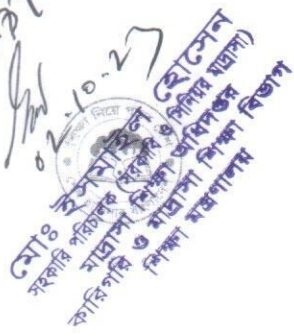 ০২.১০.২৭
শিক্ষা নিয়ে
মোঃ ইসমাইল হোসেন
সহকারি পরিচালক (সরকারি ও সিনিয়র মাদ্রাসা)
মাদ্রাসা শিক্ষা অধিদপ্তর
কারিগরি ও মাদ্রাসা শিক্ষা বিভাগ
শিক্ষা মন্ত্রণালয়